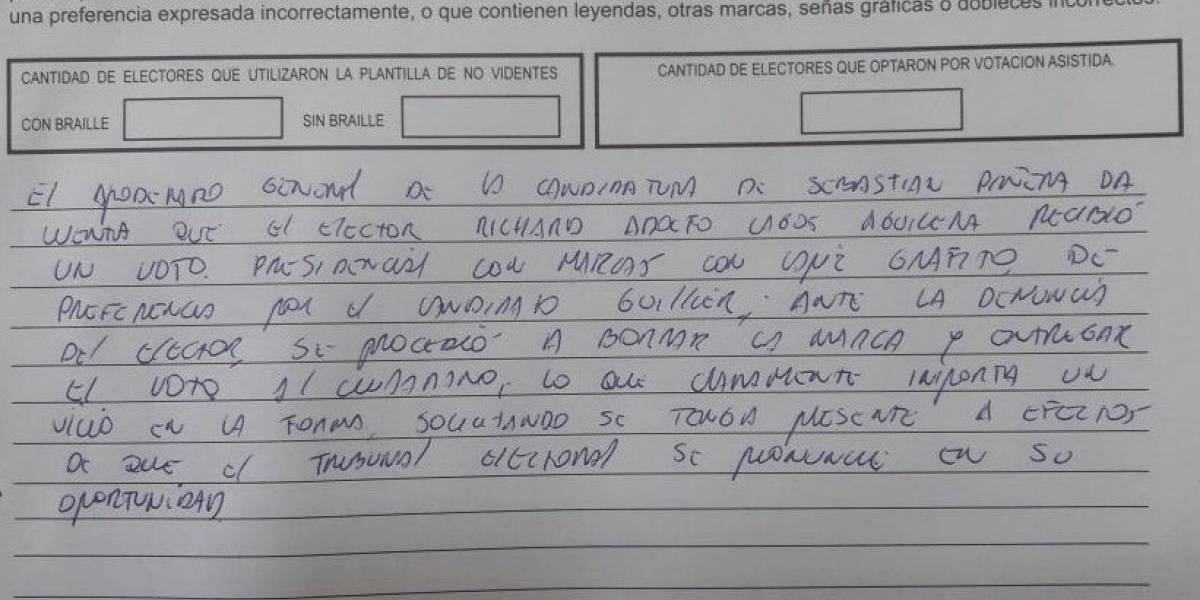 una preferencia expresada incorrectamente, o que contienen leyendas, otras marcas, señas gráficas o dobleces incorrectos.
CANTIDAD DE ELECTORES QUE UTILIZARON LA PLANTILLA DE NO VIDENTES
CON BRAILLE SIN BRAILLE
CANTIDAD DE ELECTORES QUE OPTARON POR VOTACION ASISTIDA.
El APODERADO GENERAL DE LA CANDIDATURA DE SEBASTIAN PIÑERA DA
CUENTA QUE El ELECTOR RICHARD ADOLFO LAGOS AGUILERA RECIBIÓ
UN VOTO PRESIDENCIAL CON MARCAS CON LAPIZ GRAFITO DE
PREFERENCIA POR El CANDIDATO GUILLIER, ANTE LA DENUNCIA
DEL ELECTOR, SE PROCEDIÓ A BORRAR LA MARCA Y ENTREGAR
El VOTO Al CIUDADANO, LO QUE CLARAMENTE IMPORTA UN
VICIO EN LA FORMA SOLICITANDO SE TENGA PRESENTE A EFECTOS
DE QUE El TRIBUNAL ELECTORAL SE PRONUNCIE EN SU
OPORTUNIDAD